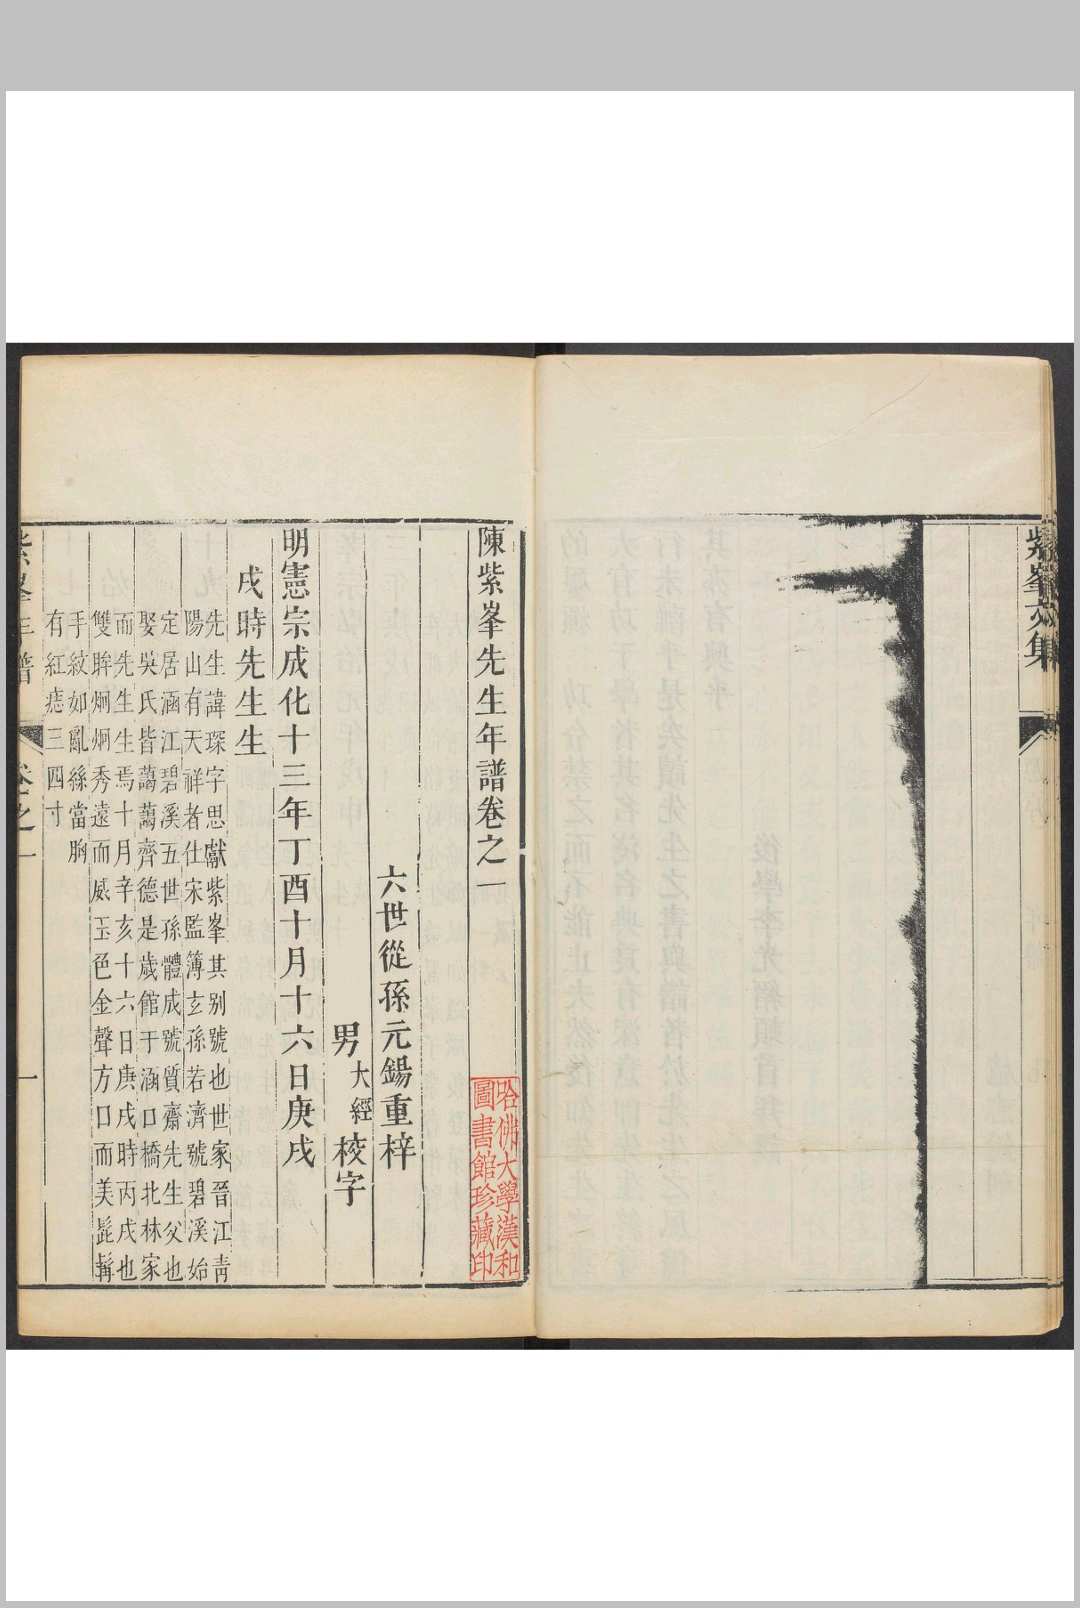 紫峯文集
陳紫峯先生年譜卷之一
哈佛大學漢和
圖書館珍藏印
六世從孫元錫重梓
男大經校字
明憲宗成化十三年丁酉十月十六日庚戌
戌時先生生
先生諱琛字思獻紫峯其别號也世家晉江靑
陽山有天祥者仕宋監簿玄孫若濟號碧溪始
定居涵江碧溪五世孫體成號質齋先生父也
娶吳氏皆藹藹齊德是歲館于涵口橋北林家
而先生生焉十月辛亥十六日庚戌時丙戌也
雙眸炯炯秀遠而威玉色金聲方口而美髭髯
手紋如亂絲當胸
有紅痣三四寸
卷之一
一